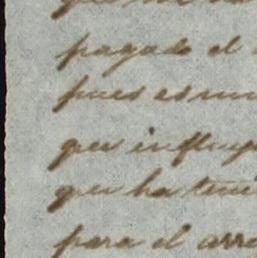 pagado el
pues es un
que influy
que ha teni
para el arre